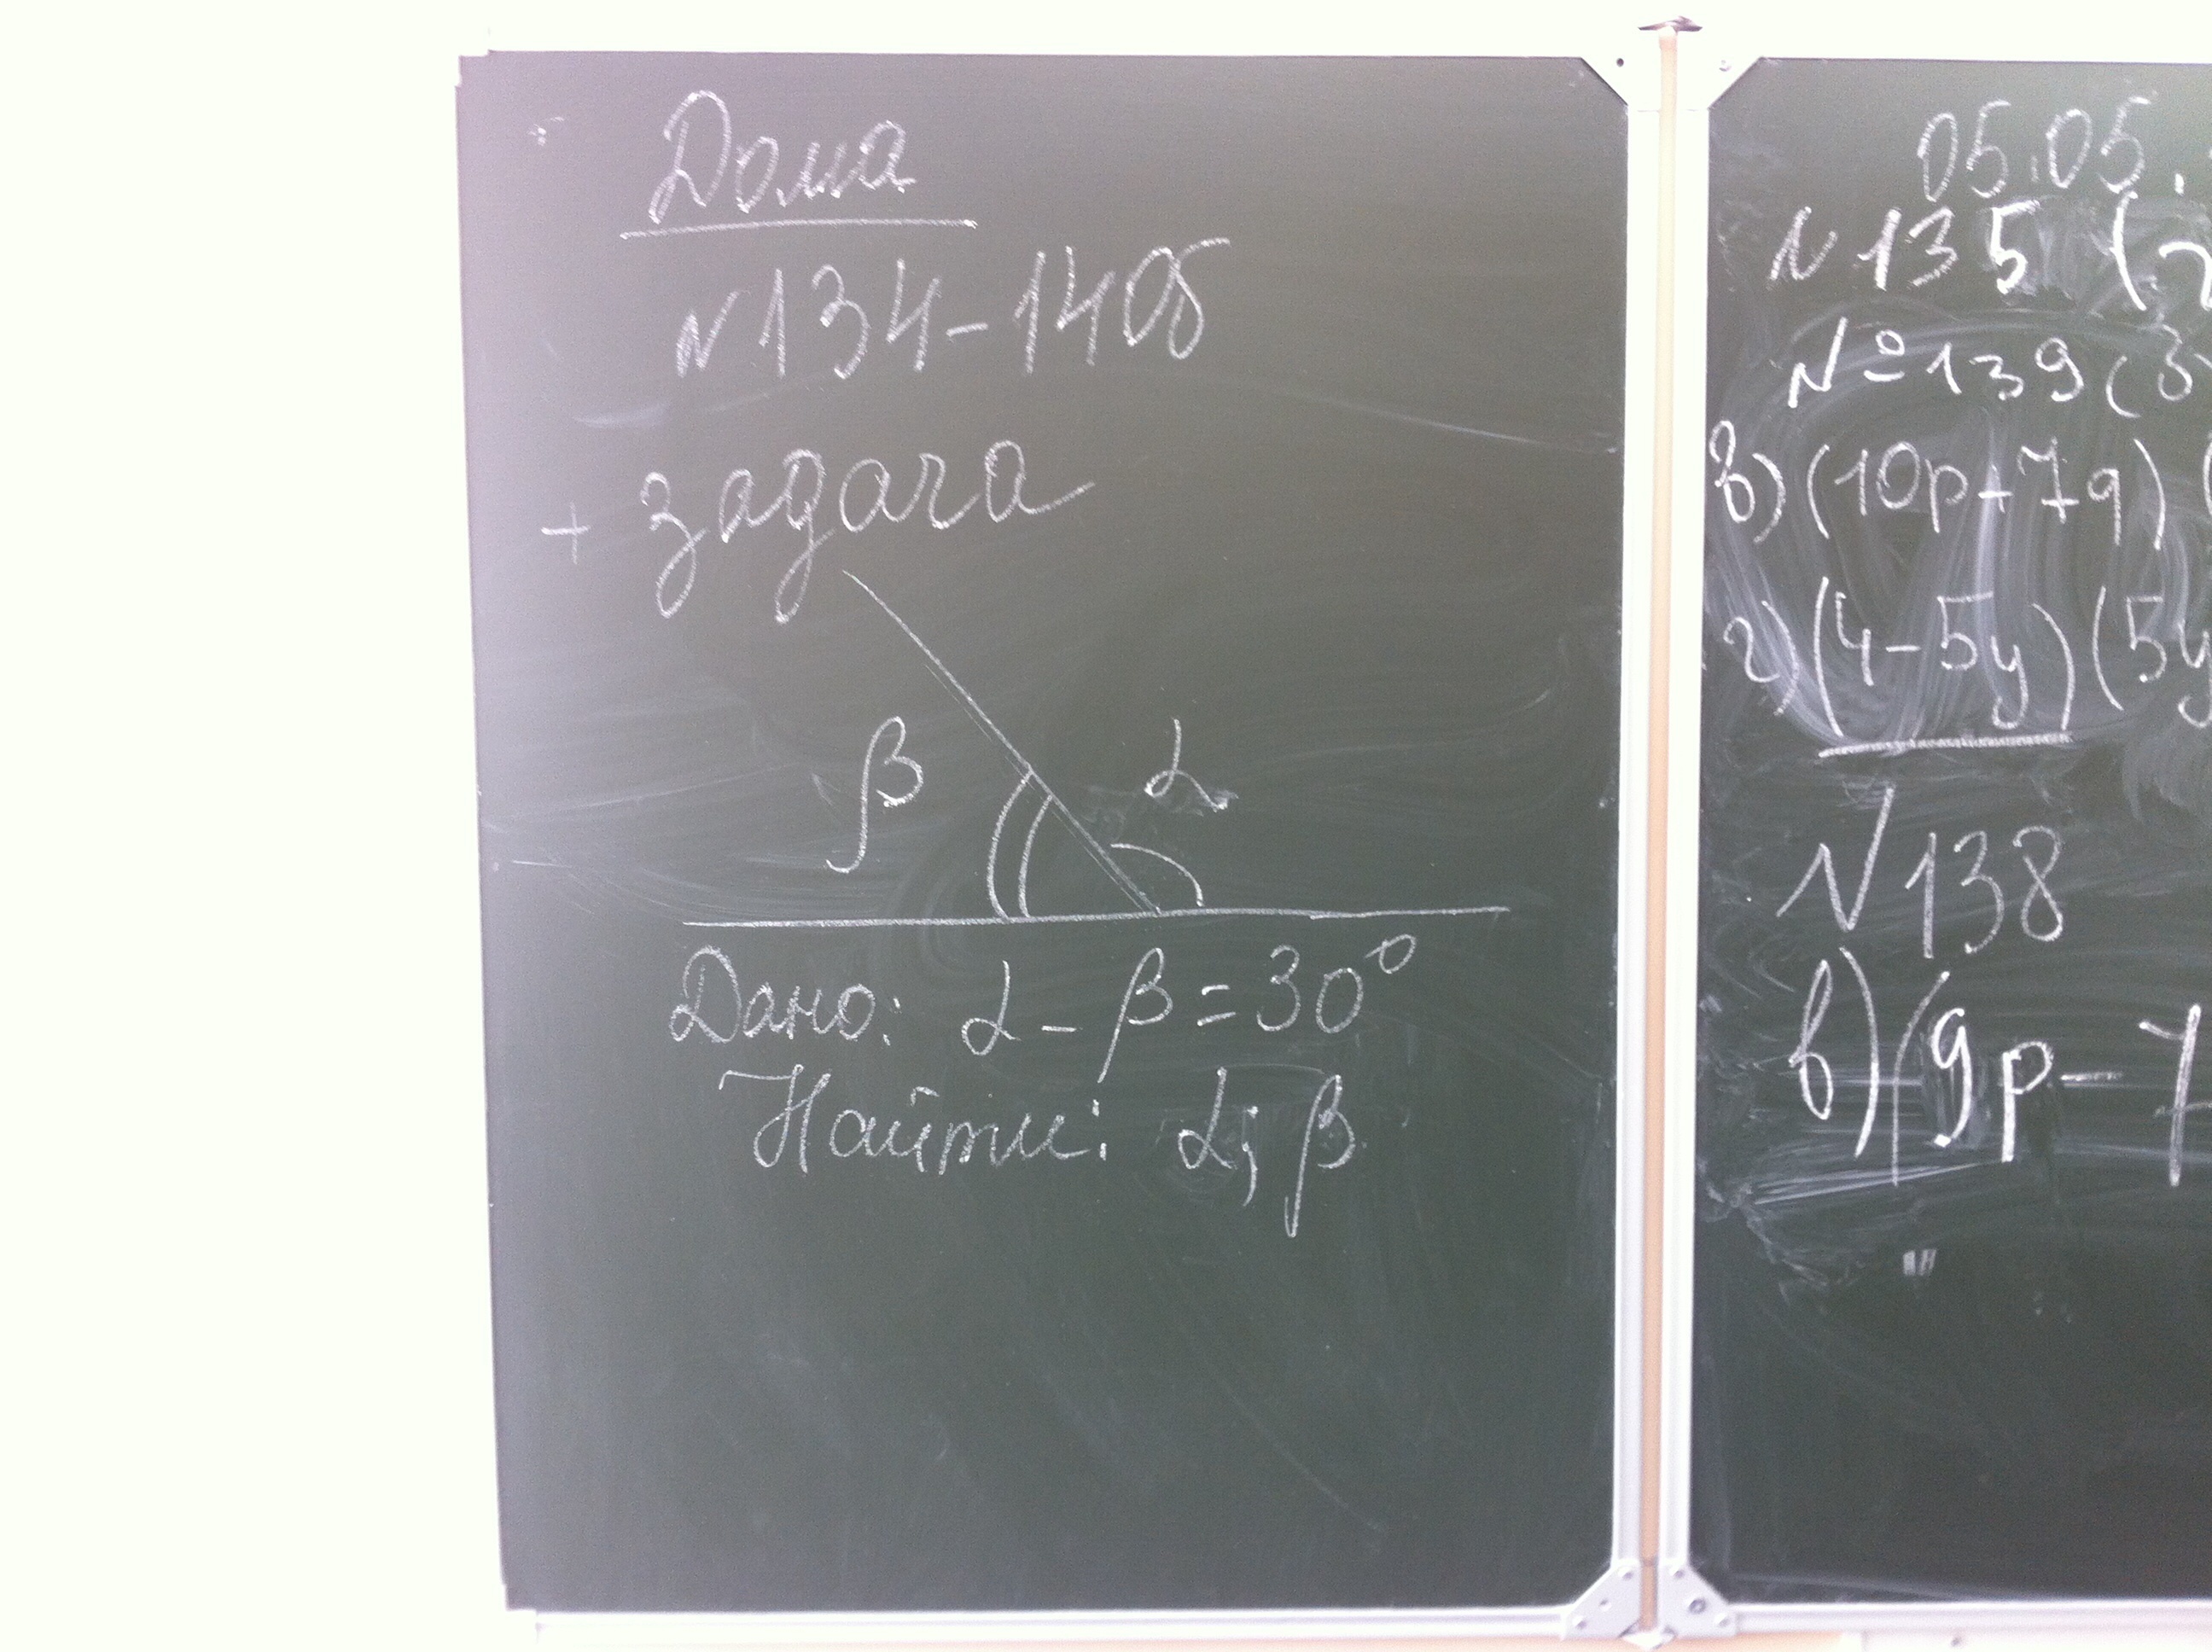 Дома
N134-140б
+ задача
β α
Дано: α - β = 30°
Найти: α; β
05.05.
N 135 (
№ 139 (
в) (10p+7q) (
г) (4-5y) (5y
N 138
в) (9p-